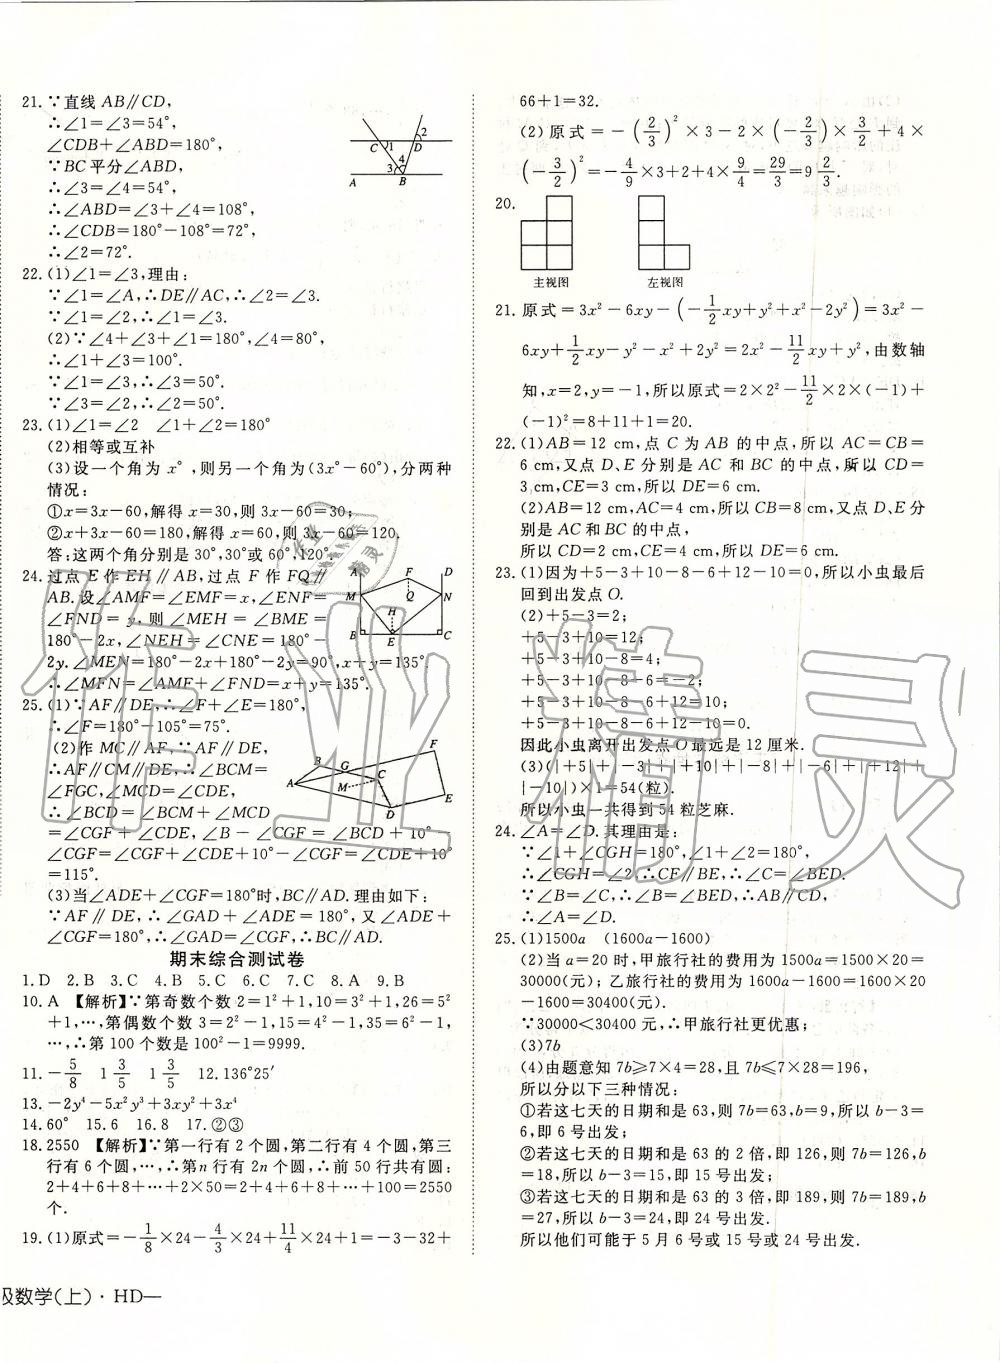 21. ∵直线 AB∥CD,
∴∠1=∠3=54°,
∠CDB+∠ABD=180°,
∵BC平分∠ABD,
∴∠3=∠4=54°,
∴∠ABD=∠3+∠4=108°,
∴∠CDB=180°-108°=72°,
∴∠2=72°.
C 1 D 2
3 4
A B
22. (1)∠1=∠3,理由:
∵∠1=∠A,∴DE∥AC,∴∠2=∠3.
∵∠1=∠2,∴∠1=∠3.
(2)∵∠4+∠3+∠1=180°,∠4=80°,
∴∠1+∠3=100°.
∵∠1=∠3,∴∠3=50°.
∵∠3=∠2,∴∠2=50°.
23. (1)∠1=∠2 ∠1+∠2=180°
(2)相等或互补
(3)设一个角为 x°,则另一个角为(3x°-60°),分两种
情况:
①x=3x-60,解得 x=30,则 3x-60=30;
②x+3x-60=180,解得 x=60,则 3x-60=120.
答:这两个角分别是 30°,30°或 60°,120°.
24. 过点 E 作 EH∥AB,过点 F 作 FQ∥
AB.设∠AMF=∠EMF=x,∠ENF=
∠FND=y,则∠MEH=∠BME=
180°-2x,∠NEH=∠CNE=180°-
2y.∠MEN=180°-2x+180°-2y=90°,x+y=135°.
∴∠MFN=∠AMF+∠FND=x+y=135°.
A F D
M Q N
H
B E C
25. (1)∵AF∥DE,∴∠F+∠E=180°,
∴∠F=180°-105°=75°.
(2)作 MC∥AF,∵AF∥DE,
∴AF∥CM∥DE,∴∠BCM=
∠FGC,∠MCD=∠CDE,
∴∠BCD=∠BCM+∠MCD
=∠CGF+∠CDE,∠B-∠CGF=∠BCD=
∠CGF=∠CGF+∠CDE+10°-∠CGF=∠CDE+10°
=115°.
(3)当∠ADE+∠CGF=180°时,BC∥AD.理由如下:
∵AF∥DE,∴∠GAD+∠ADE=180°,又∠ADE+
∠CGF=180°,∴∠GAD=∠CGF,∴BC∥AD.
B G F
C
A M
D E
期末综合测试卷
1. D 2. B 3. C 4. B 5. C 6. C 7. C 8. A 9. B
10. A 【解析】∵第奇数个数 2=1²+1,10=3²+1,26=5²
+1,…,第偶数个数 3=2²-1,15=4²-1,35=6²-
1,…,∴第 100 个数是 100²-1=9999.
11. -5/8 1 3/5 1 3/5 12. 136°25′
13. -2y⁴-5x²y³+3xy²+3x⁴
14. 60° 15. 6 16. 8 17. ②③
18. 2550 【解析】∵第一行有 2 个圆,第二行有 4 个圆,第三
行有 6 个圆,…,∴第 n 行有 2n 个圆,∴前 50 行共有圆:
2+4+6+8+…+2×50=2+4+6+8+…+100=2550
个.
19. (1)原式=-1/8×24-4/3×24+11/4×24+1=-3-32+
级数学(上)·HD—
66+1=32.
(2)原式=-(2/3)²×3-2×(-2/3)×3/2+4×
(-3/2)²=-4/9×3+2+4×9/4=29/3=9 2/3.
20.
主视图 左视图
21. 原式=3x²-6xy-(-1/2xy+y²+x²-2y²)=3x²-
6xy+1/2xy-y²-x²+2y²=2x²-11/2xy+y²,由数轴
知,x=2,y=-1,所以原式=2×2²-11/2×2×(-1)+
(-1)²=8+11+1=20.
22. (1)AB=12 cm,点 C 为 AB 的中点,所以 AC=CB=
6 cm,又点 D、E 分别是 AC 和 BC 的中点,所以 CD=
3 cm,CE=3 cm,所以 DE=6 cm.
(2)AB=12 cm,AC=4 cm,所以 CB=8 cm,又点 D、E 分
别是 AC 和 BC 的中点,
所以 CD=2 cm,CE=4 cm,所以 DE=6 cm.
23. (1)因为+5-3+10-8-6+12-10=0,所以小虫最后
回到出发点 O.
(2)+5-3=2;
+5-3+10=12;
+5-3+10-8=4;
+5-3+10-8-6=-2;
+5-3+10-8-6+12=10;
+5-3+10-8-6+12-10=0.
因此小虫离开出发点 O 最远是 12 厘米.
(3)(|+5|+|-3|+|+10|+|-8|+|-6|+|+12|+
|-10|)×1=54(粒).
所以小虫一共得到 54 粒芝麻.
24. ∠A=∠D.其理由是:
∵∠1+∠CGH=180°,∠1+∠2=180°,
∴∠CGH=∠2,∴CF∥BE,∴∠C=∠BED.
∵∠B=∠C,∴∠B=∠BED,∴AB∥CD.
∴∠A=∠D.
25. (1)1500a (1600a-1600)
(2)当 a=20 时,甲旅行社的费用为 1500a=1500×20=
30000(元);乙旅行社的费用为 1600a-1600=1600×20
-1600=30400(元).
∵30000<30400 元,∴甲旅行社更优惠;
(3)7b
(4)由题意知 7b⩾7×4=28,且 7b⩽7×28=196,
所以分以下三种情况:
①若这七天的日期和是 63,则 7b=63,b=9,所以 b-3=
6,即 6 号出发;
②若这七天的日期和是 63 的 2 倍,即 126,则 7b=126,b
=18,所以 b-3=15,即 15 号出发;
③若这七天的日期和是 63 的 3 倍,即 189,则 7b=189,b
=27,所以 b-3=24,即 24 号出发.
所以他们可能于 5 月 6 号或 15 号或 24 号出发.
作业精灵